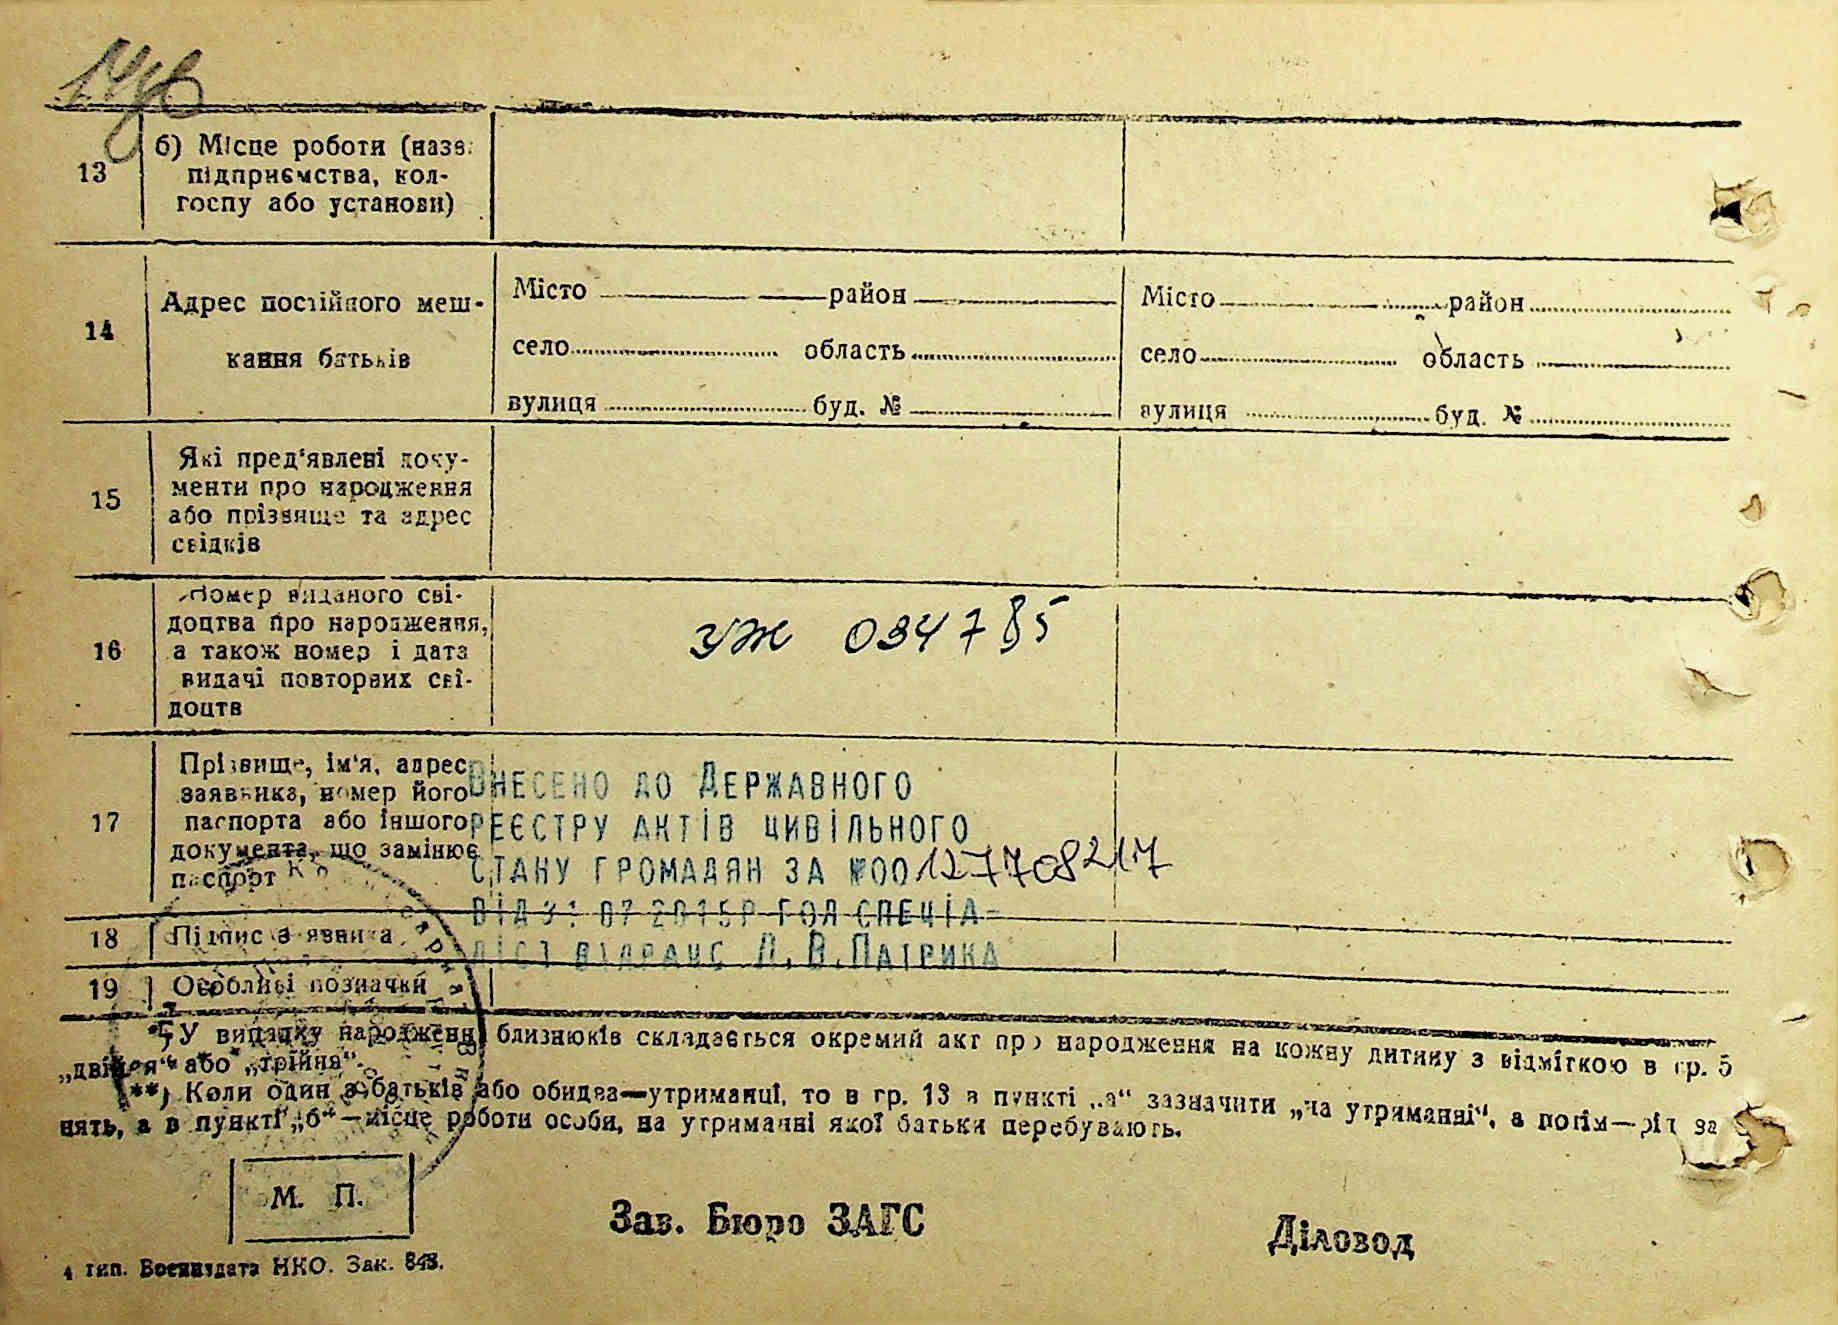 13
б) Місце роботи (назв.
підприємства, кол-
госпу або установи)
14
Адрес постійного меш-
кання батьків
Місто район
село область
вулиця буд. №
Місто район
село область
вулиця буд. №
15
Які пред'явлені доку-
менти про народження
або прізвище та адрес
свідків
16
Номер виданого сві-
доцтва про народження,
а також номер і дата
видачі повторних сві-
доцтв
УЖ 034785
17
Прізвище, ім'я, адрес
заявника, номер його
паспорта або іншого
документа, що замінює
паспорт
Внесено до Державного
реєстру актів цивільного
стану громадян за №00127708217
від 31 07 2015р гол специіа-
ліст відрацс Л. В. Патрика
18
Підпис заявника
19
Особливі позначки
*) У випадку народження близнюків складається окремий акт про народження на кожну дитину з відміткою в гр. 5
„двійня“ або „трійня“.
**) Коли один з батьків або обидва—утриманці, то в гр. 13 в пункті „а“ зазначити „на утриманні“, а потім—рід за
нять, а в пункті „б“—місце роботи особи, на утриманні якої батьки перебувають.
М. П.
Зав. Бюро ЗАГС
Діловод
4 тип. Воениздата НКО. Зак. 843.